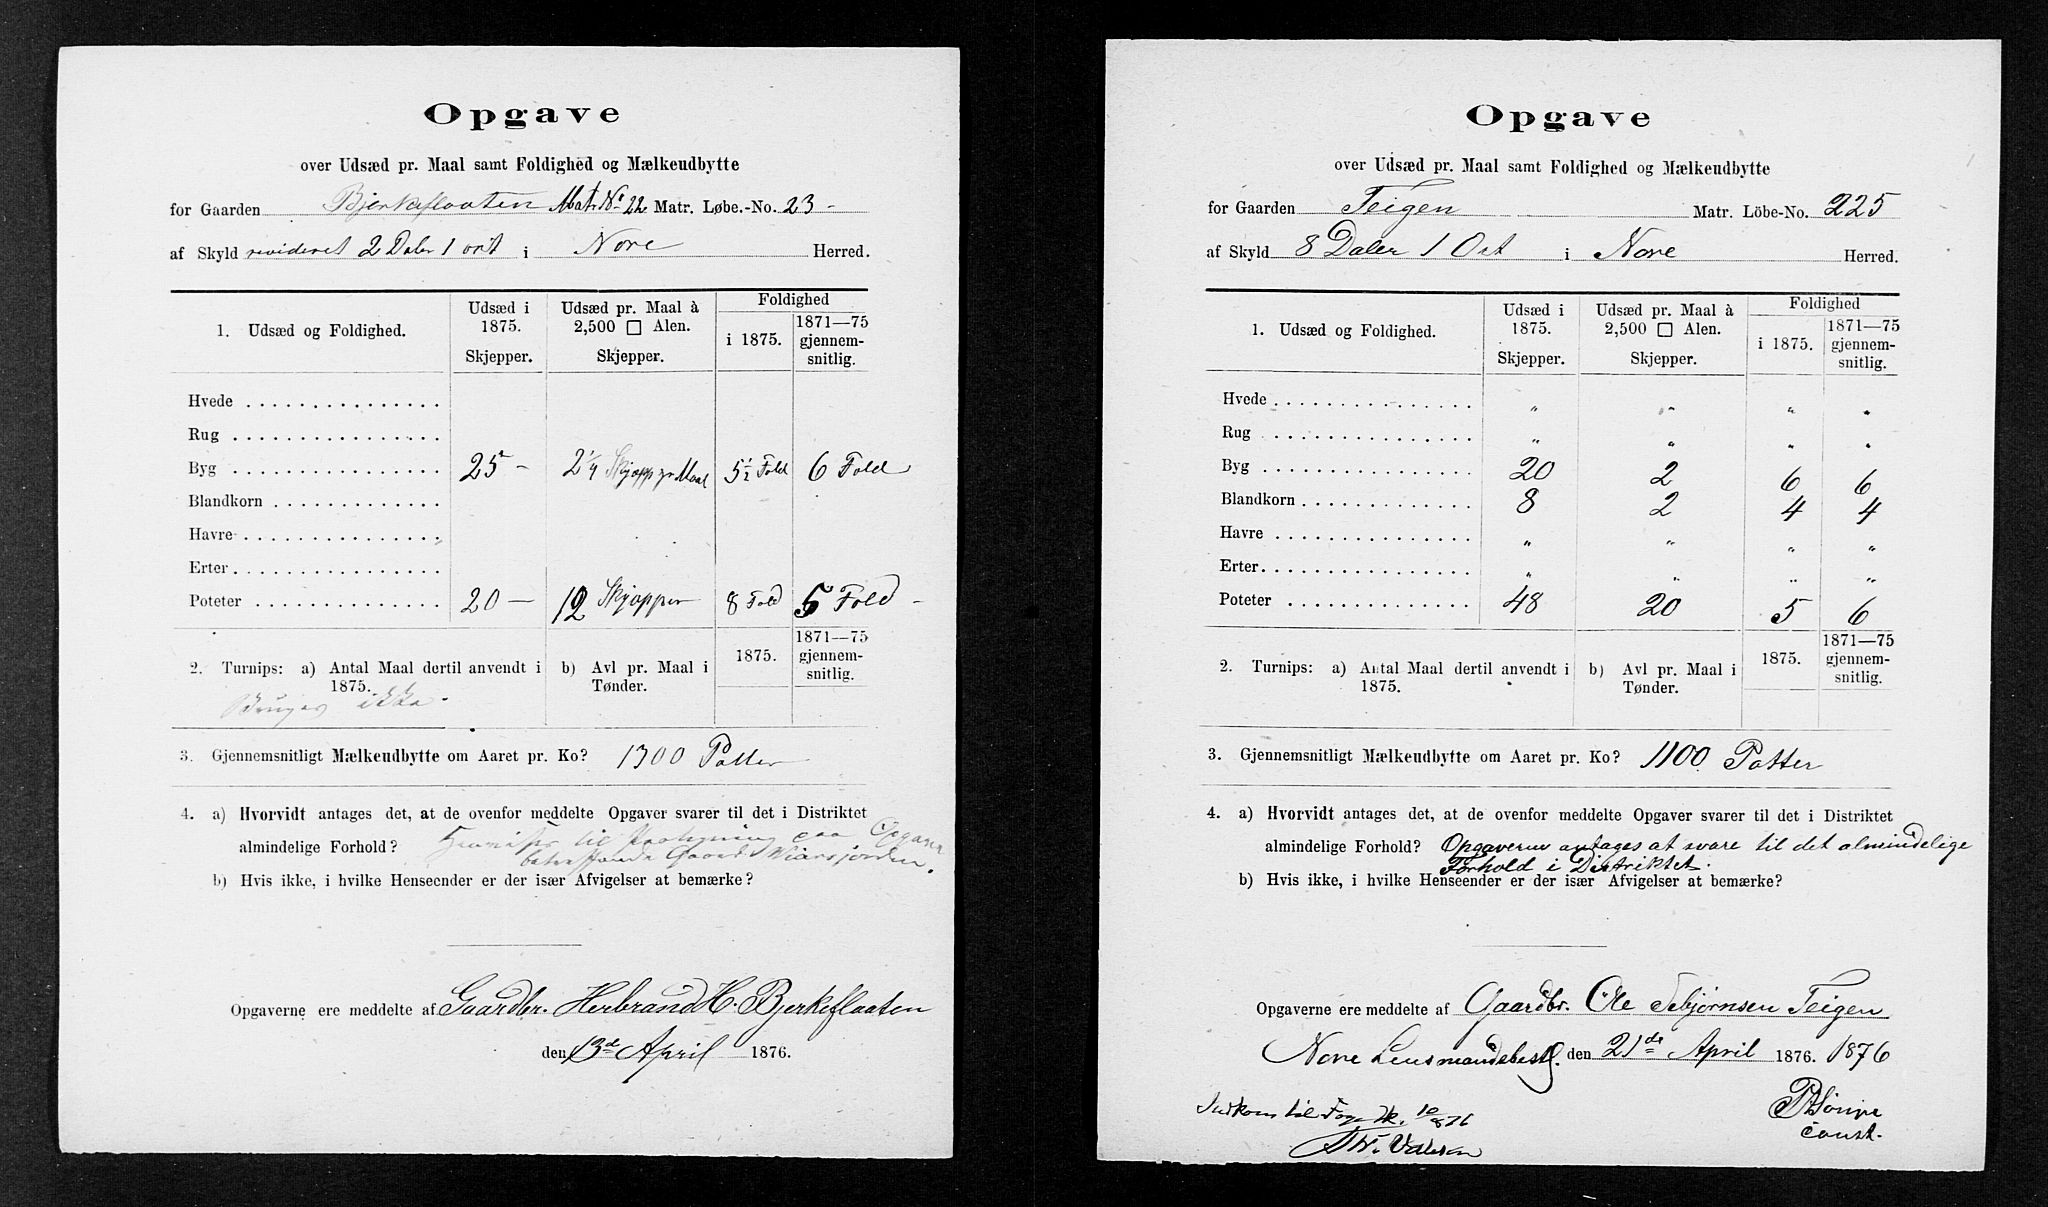 Opgave
over Udsæd pr. Maal samt Foldighed og Mælkeudbytte
for Gaarden Bjerkeflaaten Matr. No 22 Matr. Løbe.-No. 23 -
af Skyld revideret 2 Daler 1 ort i Nore Herred.
1. Udsæd og Foldighed.
Udsæd i 1875. Skjepper.
Udsæd pr. Maal à 2,500 □ Alen. Skjepper.
Foldighed
i 1875.
1871—75 gjennem-snitlig.
Hvede
Rug
Byg 25 - 2 1/4 Skjepp pr Maal 5 1/2 Fold 6 Fold
Blandkorn
Havre
Erter
Poteter 20 — 12 Skjepper 8 Fold 5 Fold -
2. Turnips: a) Antal Maal dertil anvendt i 1875.
Bruges ikke.
b) Avl pr. Maal i Tønder.
1875.
1871—75 gjennem-snitlig.
3. Gjennemsnitligt Mælkeudbytte om Aaret pr. Ko? 1300 Potter
4. a) Hvorvidt antages det, at de ovenfor meddelte Opgaver svarer til det i Distriktet
almindelige Forhold? til paa Opgave
betræffende Gaard
b) Hvis ikke, i hvilke Henseender er der især Afvigelser at bemærke?
Opgaverne ere meddelte af Gaardbr. Herbrand H. Bjerkeflaaten
den 13de April 1876.
Opgave
over Udsæd pr. Maal samt Foldighed og Mælkeudbytte
for Gaarden Teigen Matr. Löbe-No. 225
af Skyld 8 Daler 1 Ort i Nore Herred.
1. Udsæd og Foldighed.
Udsæd i 1875. Skjepper.
Udsæd pr. Maal à 2,500 □ Alen. Skjepper.
Foldighed
i 1875.
1871—75 gjennem-snitlig.
Hvede " " " "
Rug " " " "
Byg 20 2 6 6
Blandkorn 8 2 4 4
Havre " " " "
Erter " " " "
Poteter 48 20 5 6
2. Turnips: a) Antal Maal dertil anvendt i 1875.
b) Avl pr. Maal i Tønder.
1875.
1871—75 gjennem-snitlig.
3. Gjennemsnitligt Mælkeudbytte om Aaret pr. Ko? 1100 Potter
4. a) Hvorvidt antages det, at de ovenfor meddelte Opgaver svarer til det i Distriktet
almindelige Forhold? Opgaverne antages at svare til det almindelige
Forhold i Distriktet.
b) Hvis ikke, i hvilke Henseender er der især Afvigelser at bemærke?
Opgaverne ere meddelte af Gaardbr. Ole Tebjørnsen Teigen
Nore Lensmandsbest. den 21de April 1876. 1876
const.
Indkom til 10/8 76